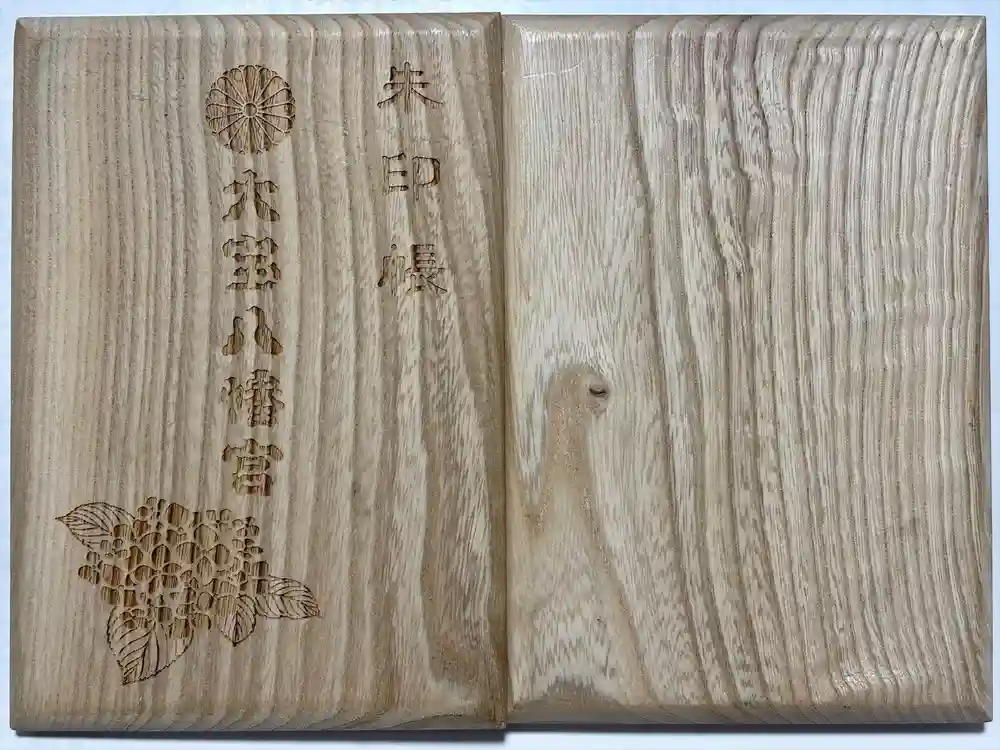 朱印帳
大宝八幡宮